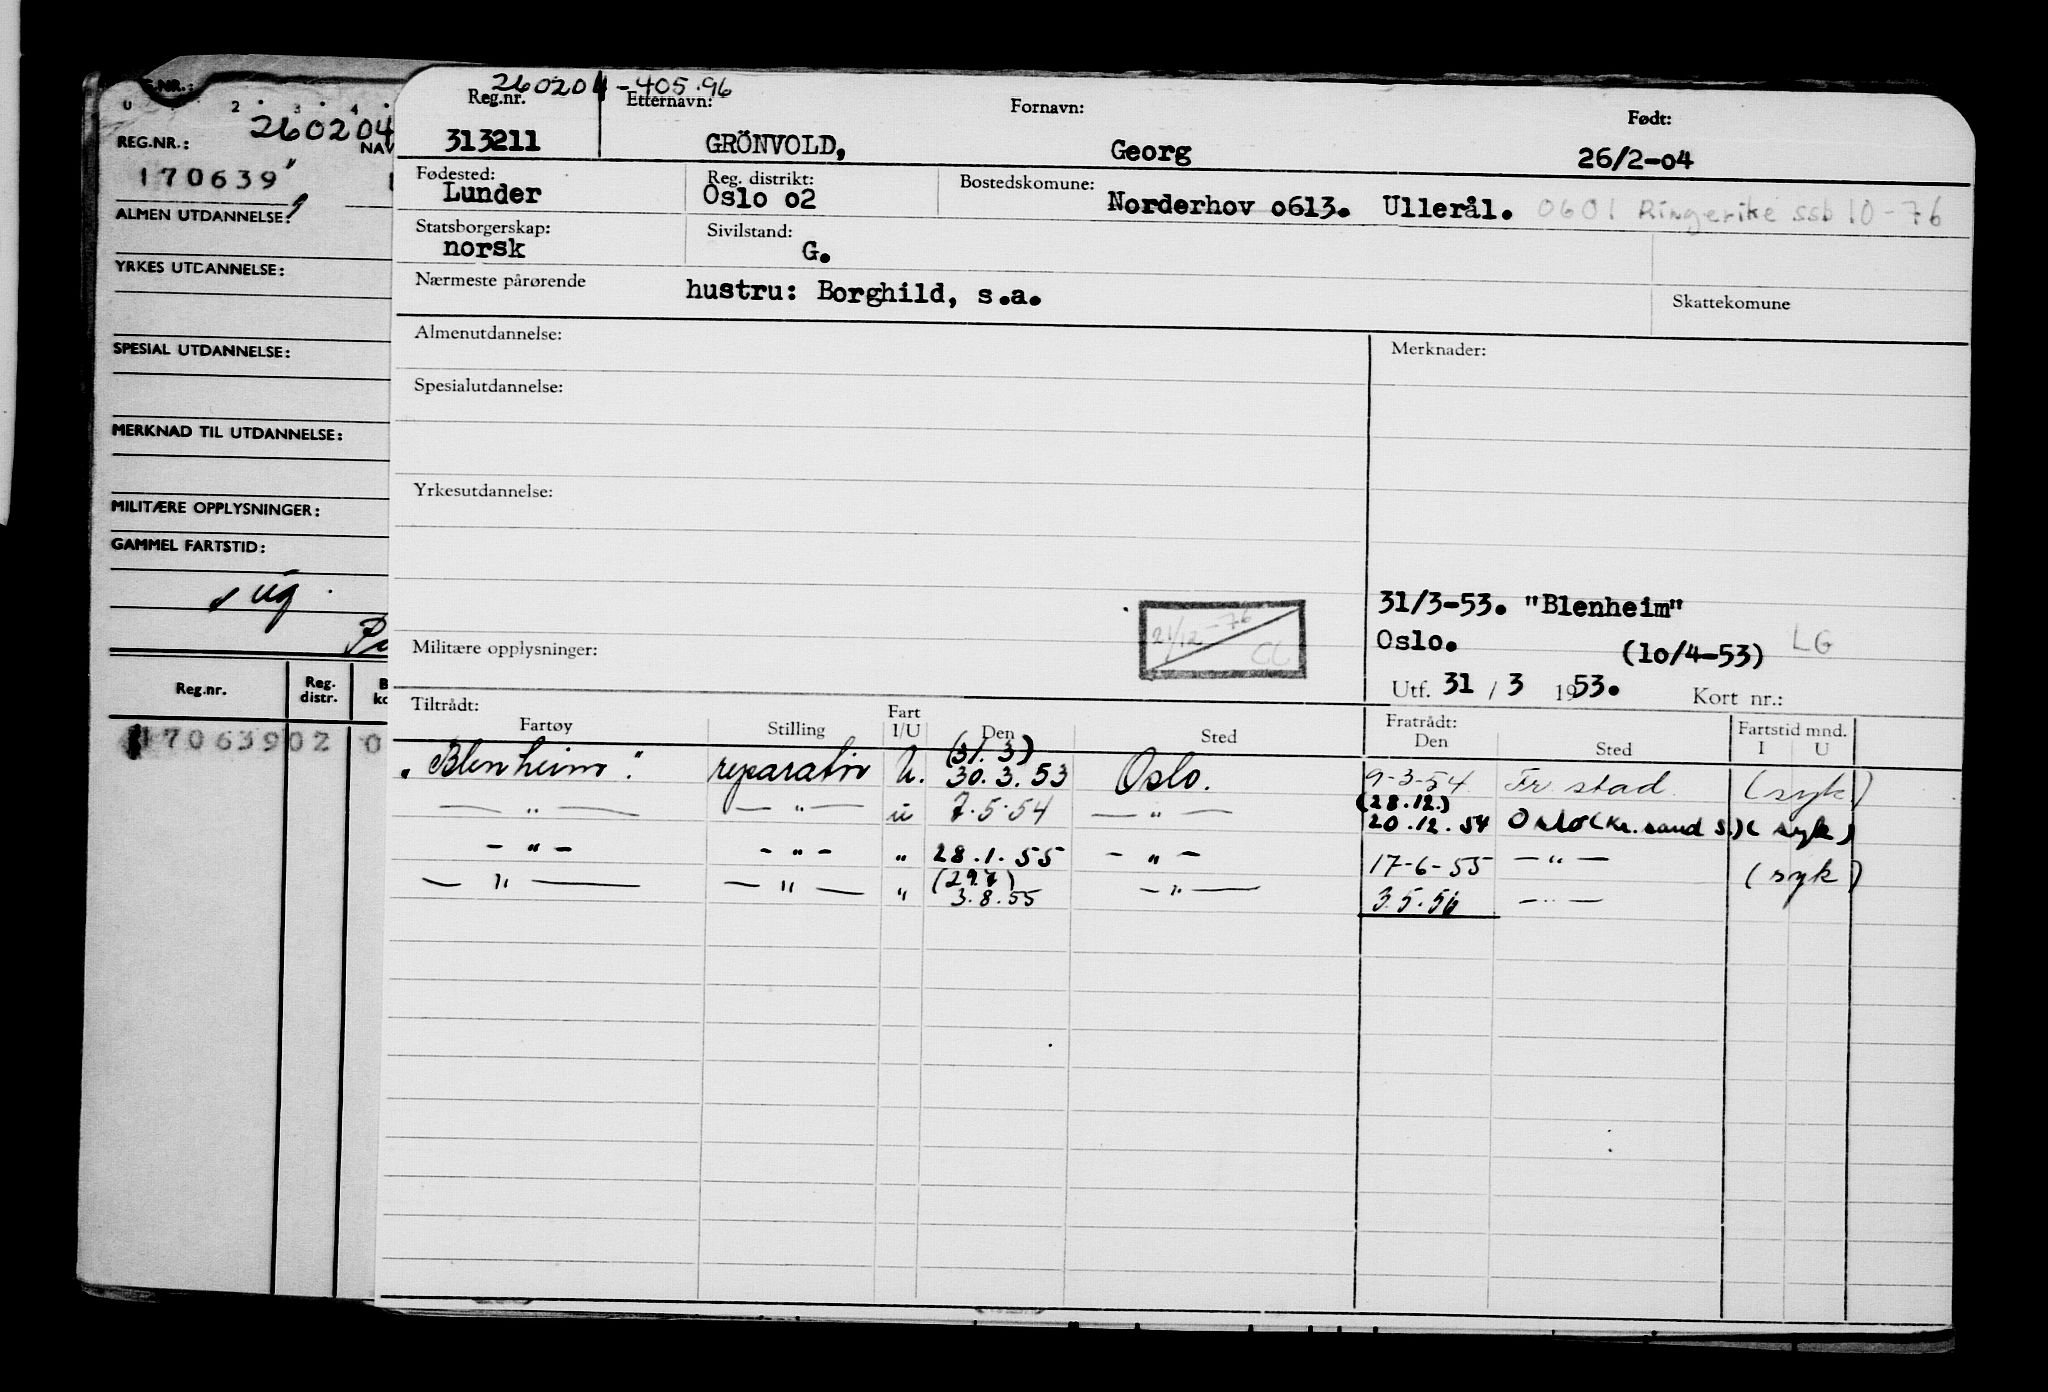 260204
REG.NR.:
NAV
170639
ALMEN UTDANNELSE:
YRKES UTDANNELSE:
SPESIAL UTDANNELSE:
MERKNAD TIL UTDANNELSE:
MILITÆRE OPPLYSNINGER:
GAMMEL FARTSTID:
Reg.nr. Reg. distr.
17063902 0
260204-405.96
Reg.nr. Etternavn: Fornavn: Født:
313211 GRÖNVOLD, Georg 26/2-04
Fødested: Reg. distrikt: Bostedskomune:
Lunder Oslo o2 Norderhov o613. Ullerål. 0601 Ringerike ssb 10-76
Statsborgerskap: Sivilstand:
norsk G.
Nærmeste pårørende hustru: Borghild, s.a. Skattekomune
Almenutdannelse: Merknader:
Spesialutdannelse:
Yrkesutdannelse:
31/3-53. "Blenheim"
21/12-76 CL
Oslo. (10/4-53) LG
Militære opplysninger:
Utf. 31 / 3 1953. Kort nr.:
Tiltrådt: Fratrådt: Fartstid mnd.
Fartøy Stilling Fart I/U Den Sted Den Sted I U
(31.3)
"Blenheim" reparatör U. 30.3.53 Oslo. 9-3-54 Fr. stad (syk)
(28.12.)
— " — — " — u 7.5.54 — " — 20.12.54 Oslo (Kr.sand S.) (syk)
- " - - " - " 28.1.55 - " - 17-6-55 — " — (syk)
(29.7)
— " — — " — " 3.8.55 — " — 3.5.56 — " —